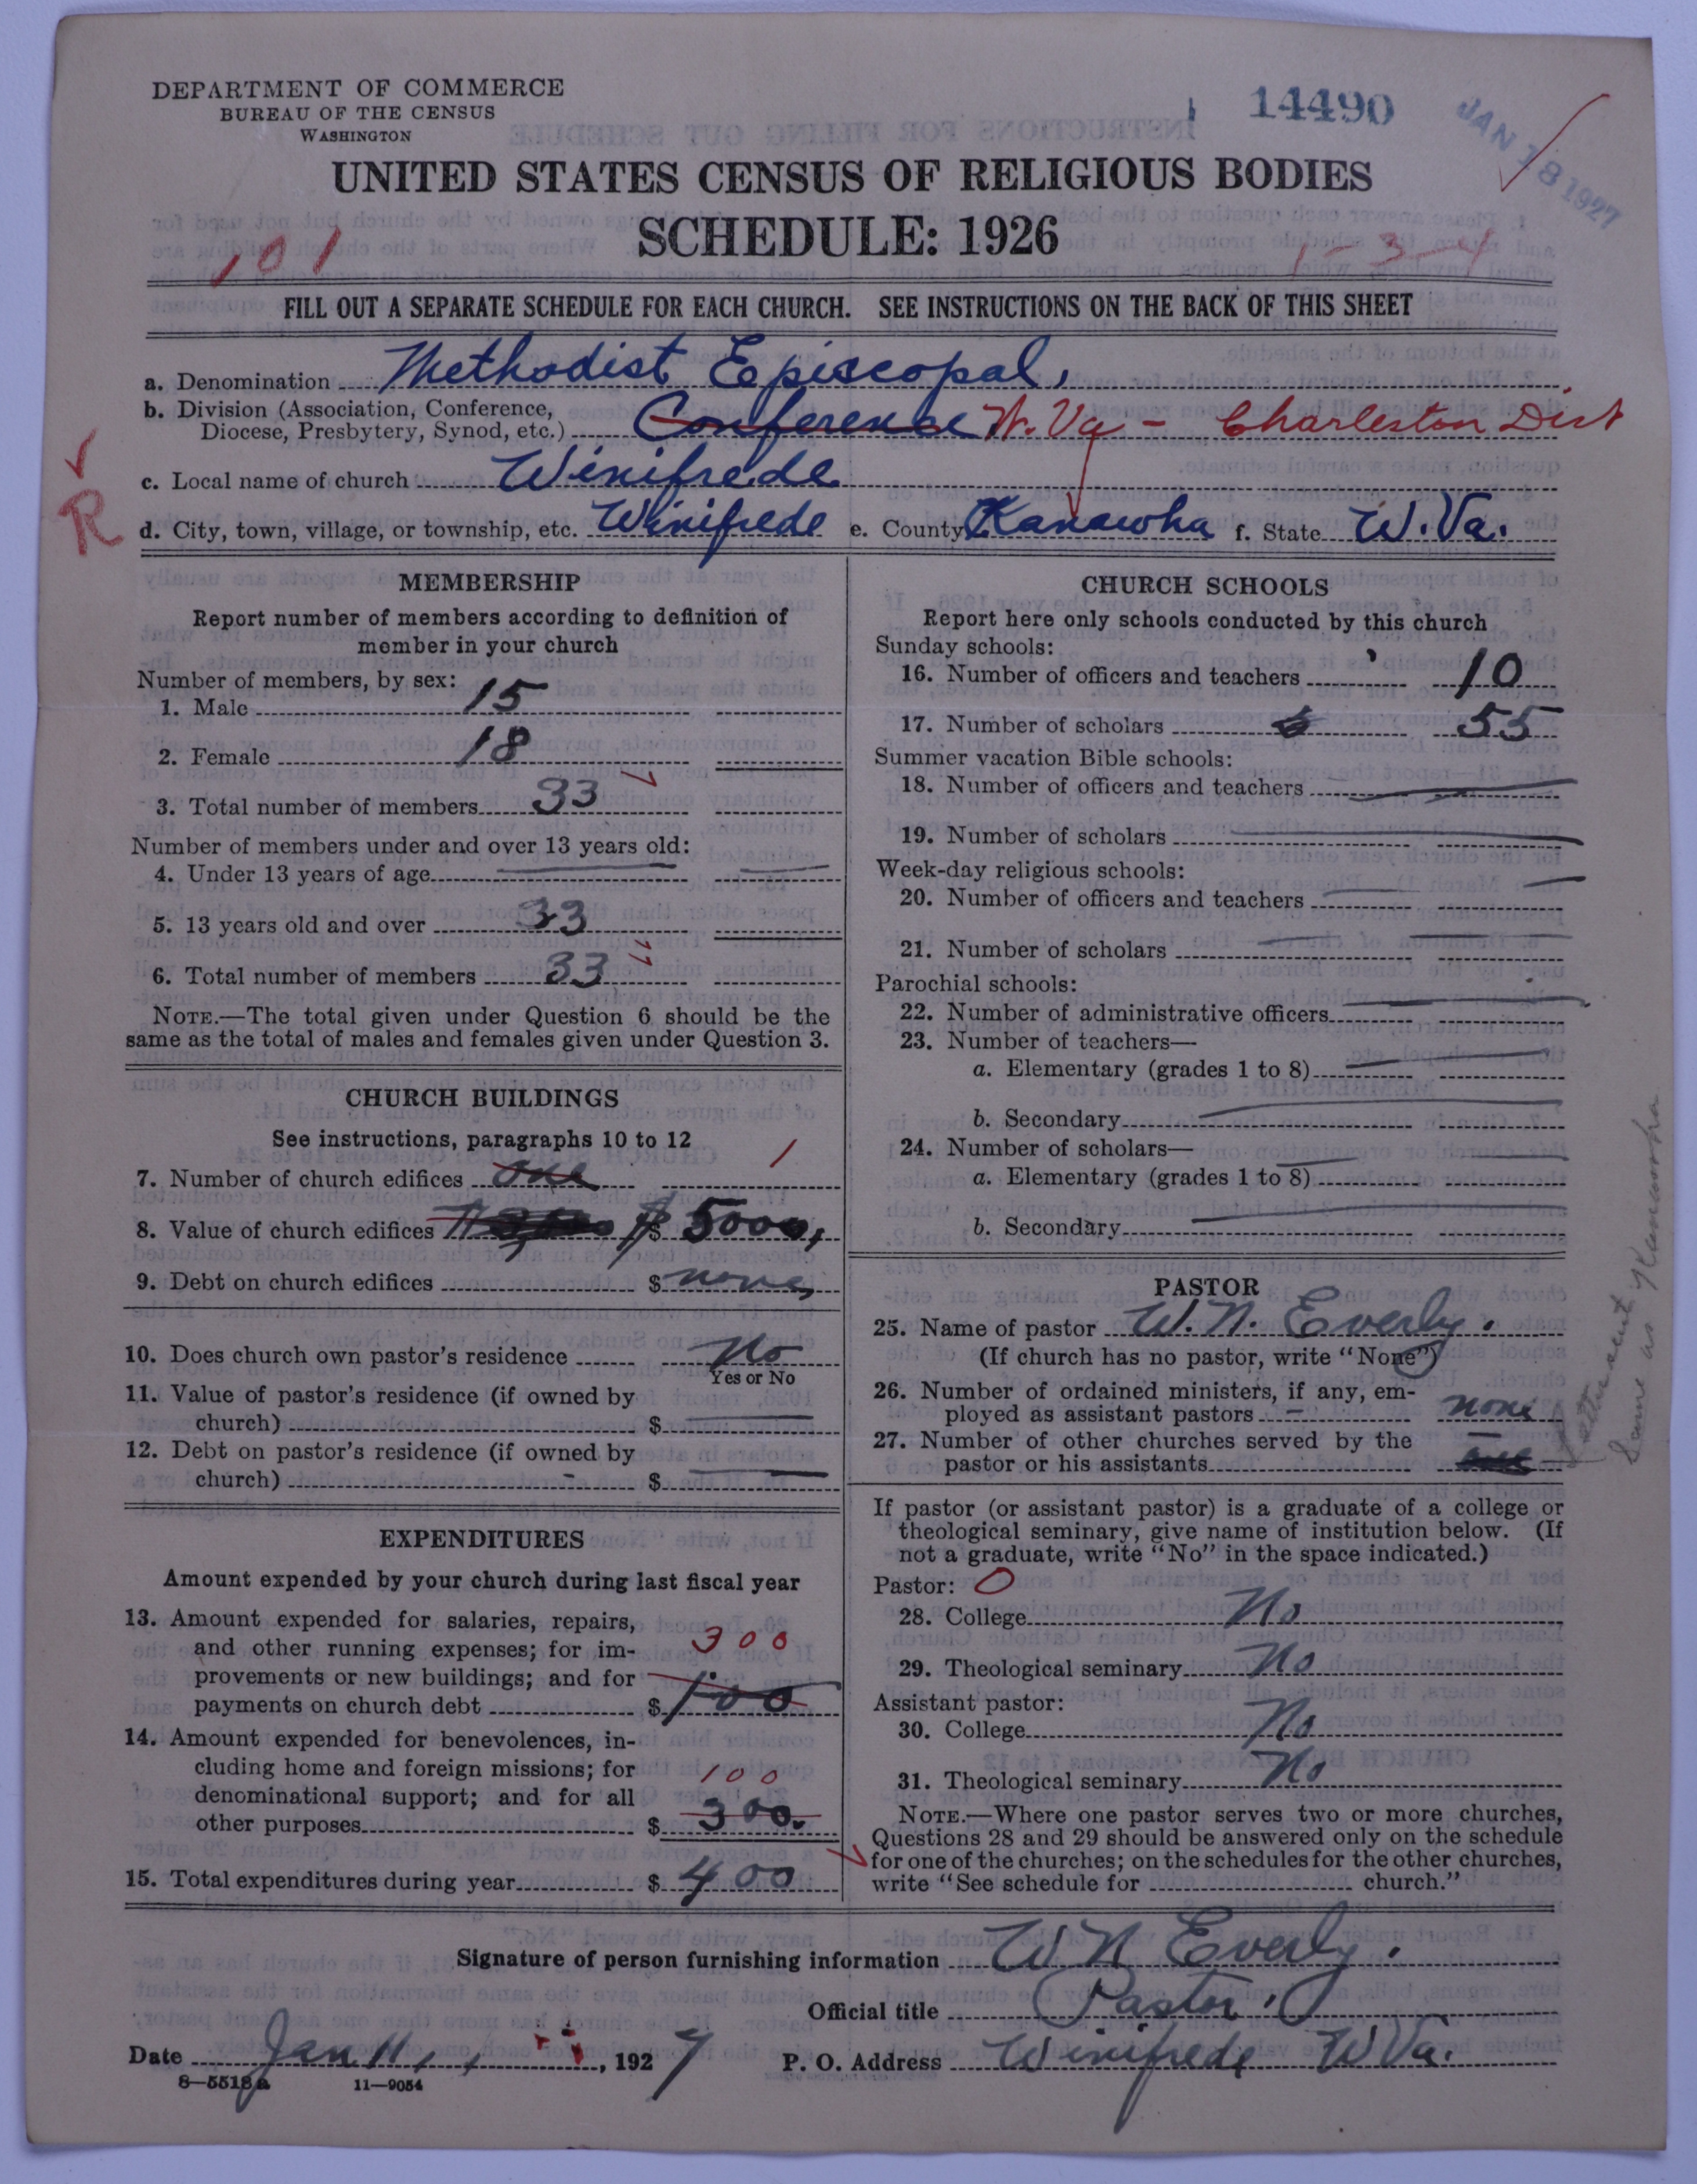 DEPARTMENT OF COMMERCE
BUREAU OF THE CENSUS
WASHINGTON
14490
JAN 18 1927
UNITED STATES CENSUS OF RELIGIOUS BODIES
SCHEDULE: 1926
101
1-3-4
FILL OUT A SEPARATE SCHEDULE FOR EACH CHURCH. SEE INSTRUCTIONS ON THE BACK OF THIS SHEET
a. Denomination Methodist Episcopal,
b. Division (Association, Conference,
Diocese, Presbytery, Synod, etc.) Conference W. Va - Charleston Dist
c. Local name of church Winifrede
R
d. City, town, village, or township, etc. Winifrede e. County Kanawha f. State W. Va.
MEMBERSHIP
Report number of members according to definition of
member in your church
Number of members, by sex:
1. Male 15
2. Female 18
3. Total number of members 33
Number of members under and over 13 years old:
4. Under 13 years of age
5. 13 years old and over 33
6. Total number of members 33
NOTE.—The total given under Question 6 should be the
same as the total of males and females given under Question 3.
CHURCH BUILDINGS
See instructions, paragraphs 10 to 12
7. Number of church edifices one 1
8. Value of church edifices $ 5000,
9. Debt on church edifices $ none,
10. Does church own pastor's residence No
Yes or No
11. Value of pastor's residence (if owned by
church) $
12. Debt on pastor's residence (if owned by
church) $
EXPENDITURES
Amount expended by your church during last fiscal year
13. Amount expended for salaries, repairs,
and other running expenses; for im-
300
provements or new buildings; and for
payments on church debt $ 100
14. Amount expended for benevolences, in-
cluding home and foreign missions; for
100
denominational support; and for all
other purposes $ 300.
15. Total expenditures during year $ 400
CHURCH SCHOOLS
Report here only schools conducted by this church
Sunday schools:
16. Number of officers and teachers 10
17. Number of scholars 55
Summer vacation Bible schools:
18. Number of officers and teachers
19. Number of scholars
Week-day religious schools:
20. Number of officers and teachers
21. Number of scholars
Parochial schools:
22. Number of administrative officers
23. Number of teachers—
a. Elementary (grades 1 to 8)
b. Secondary
24. Number of scholars—
a. Elementary (grades 1 to 8)
b. Secondary
PASTOR
25. Name of pastor W. N. Everly.
(If church has no pastor, write "None")
26. Number of ordained ministers, if any, em-
ployed as assistant pastors none
27. Number of other churches served by the
pastor or his assistants
If pastor (or assistant pastor) is a graduate of a college or
theological seminary, give name of institution below. (If
not a graduate, write "No" in the space indicated.)
Pastor: O
28. College No
29. Theological seminary No
Assistant pastor:
30. College No
31. Theological seminary No
NOTE.—Where one pastor serves two or more churches,
Questions 28 and 29 should be answered only on the schedule
for one of the churches; on the schedules for the other churches,
write "See schedule for church."
same as Kanawha
Signature of person furnishing information W N Everly.
Official title Pastor.
Date Jan 11, , 1927 P. O. Address Winifrede W Va.
8—5518a 11—9054